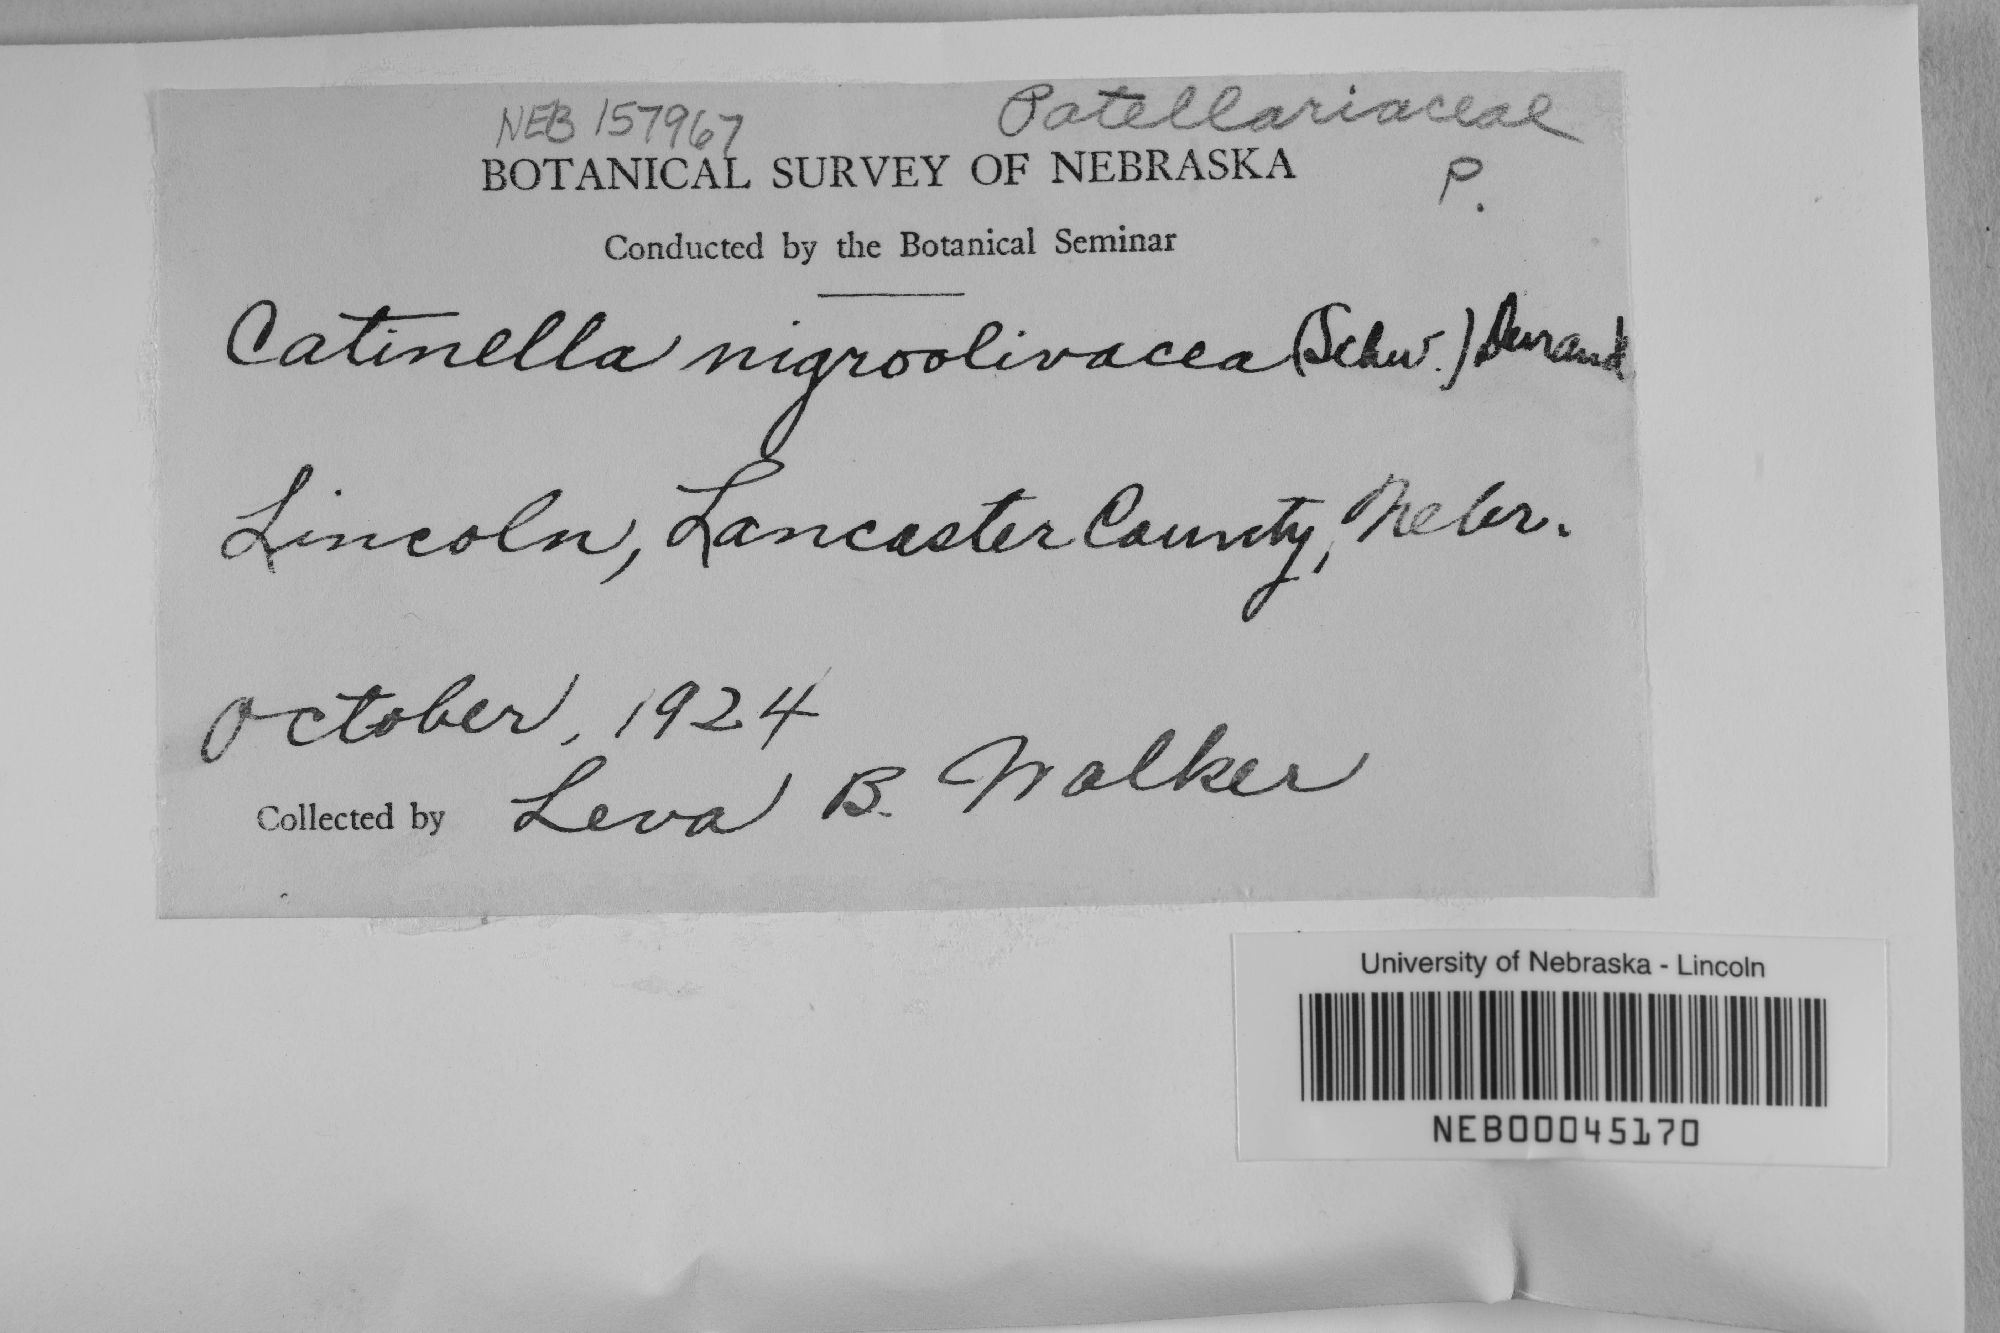 NEB 157967
Patellariaceae
P.
BOTANICAL SURVEY OF NEBRASKA
Conducted by the Botanical Seminar
Catinella nigroolivacea (Schw.) Durand
Lincoln, Lancaster County, Nebr.
October, 1924
Collected by Leva B. Walker
University of Nebraska - Lincoln
NEB00045170